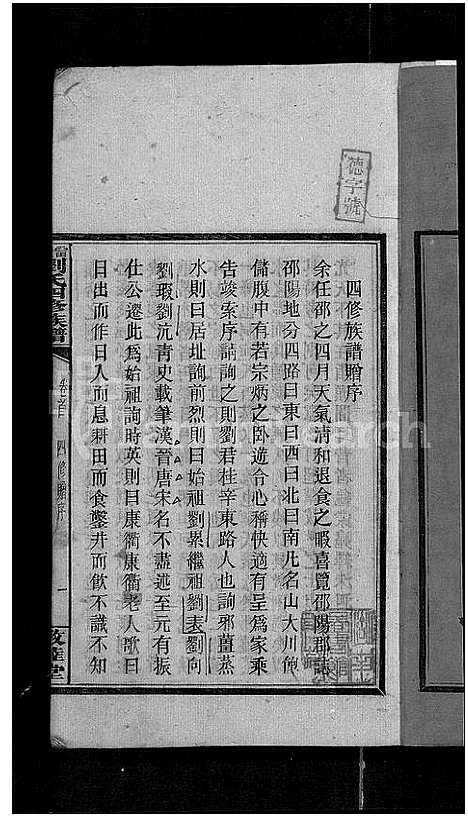 德字號
四修族譜贈序
余任邵之四月天氣清和退食之暇喜覽邵陽郡誌
邵陽地分四路曰東曰西曰北曰南凡名山大川飽
儲腹中有若宗炳之臥遊令心稱快適有呈為家乘
告竣索序請詢之則劉君桂辛東路人也詢邪薑蒸
水則曰居址詢前烈則曰始祖劉累繼祖劉表劉向
劉瑕劉沆青史載筆漢晉唐宋名不盡述至元有振
仕公遷此為始祖詢時英則曰康衢康衢老人歌曰
日出而作日入而息耕田而食鑿井而飲不識不知
劉氏四修族譜
卷首
四修贈序
一